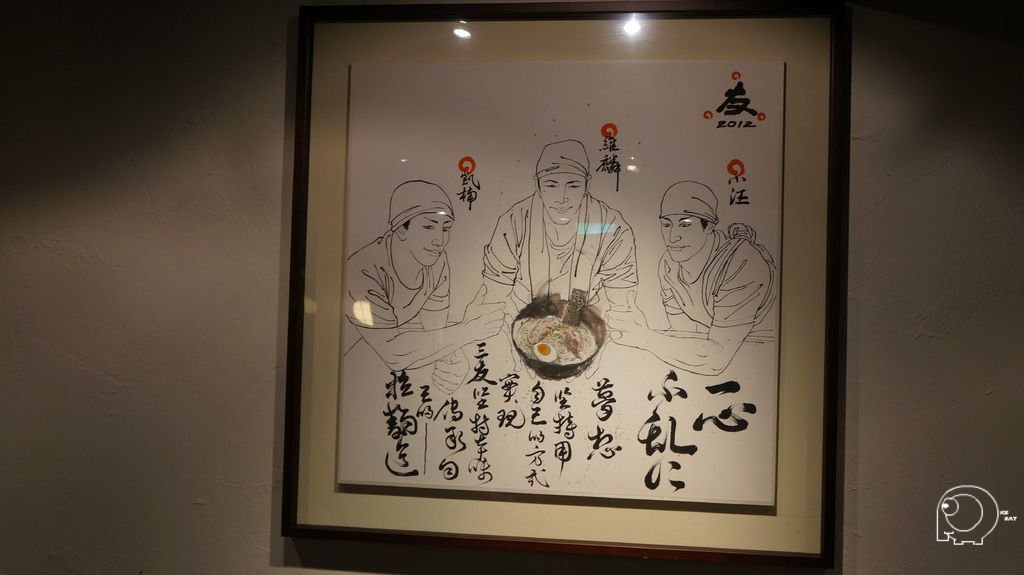 友
2012
小汪
維麟
凱楠
一心
不乱に
夢想
堅持用
自己的方式
實現
三友堅持本味
傳承自
正的一
拉麵道
ICE
EAT